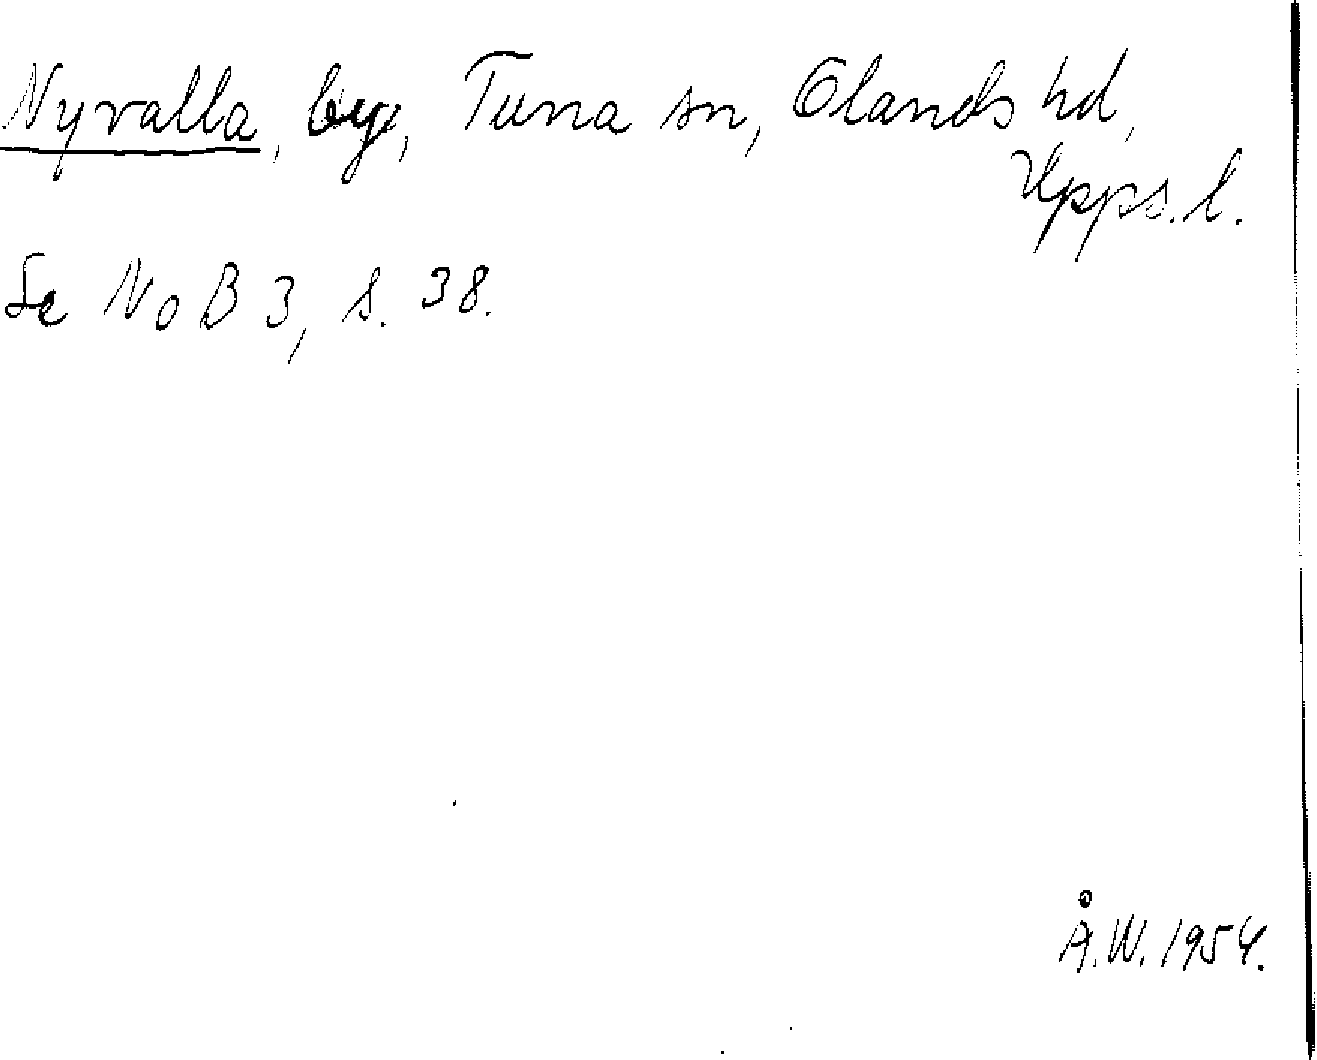 Nyvalla, by, Tuna sn, Olands hd,
Upps. l.
Se NoB 3, s. 38.
Å.W. 1954.